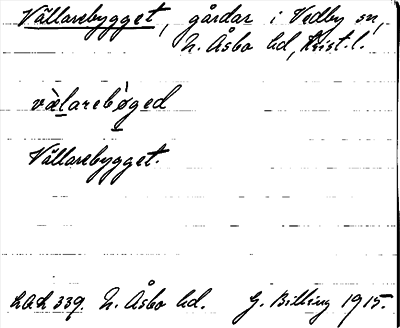 Vällarebygget, gårdar i Vedby sn,
N. Åsbo hd, Krist. l.
væ̀larebǿged
Vällarebygget.
LAL 339 N. Åsbo hd. G. Billing 1915.